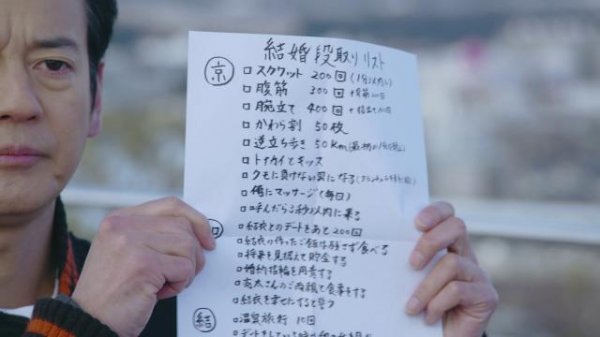 結婚段取りリスト
京
□ スクワット 200回
□ 腹筋 300回
□ 腕立て 400回
□ かわら割 50枚
□ 逆立ち歩き 50Km
□ トナカイとキッス
□ クモに負けない男になる
□ 俺にマッサージ(毎日)
□ 呼んだら3秒以内に来る
□ 結衣とのデートをあと200回
□ 結衣の作ったご飯は残さず食べる
□ 将来を見据えて貯金する
□ 婚約指輪を用意する
□ さんのご両親と食事をする
□ 結衣を幸せにすると誓う
結
□ 温泉旅行 10回